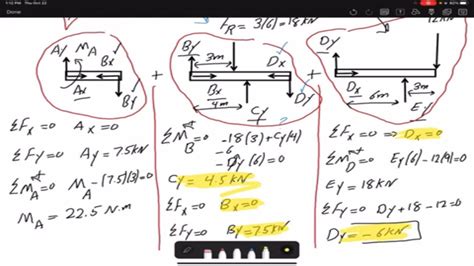 1:12 PM Thu Oct 22
Done
F_R = 3(6) = 18 kN
12 kN
Ay M_A Bx
Ax By
+
By 3m Dx
Bx 4m Dy
Cy
+
Dy
Dx 6m 3m
Ey
ΣFx=0 Ax=0
ΣFy=0 Ay=7.5kN
ΣM_A=0 M_A-(7.5)(3)=0
M_A = 22.5 N.m
ΣM_B=0 -18(3)+Cy(4)
-6
-Dy(6)=0
Cy = 4.5kN
ΣFx=0 Bx=0
ΣFy=0 By=7.5kN
ΣFx=0 ⇒ Dx=0
ΣM_D=0 Ey(6)-12(9)=0
Ey=18kN
ΣFy=0 Dy+18-12=0
Dy=-6kN